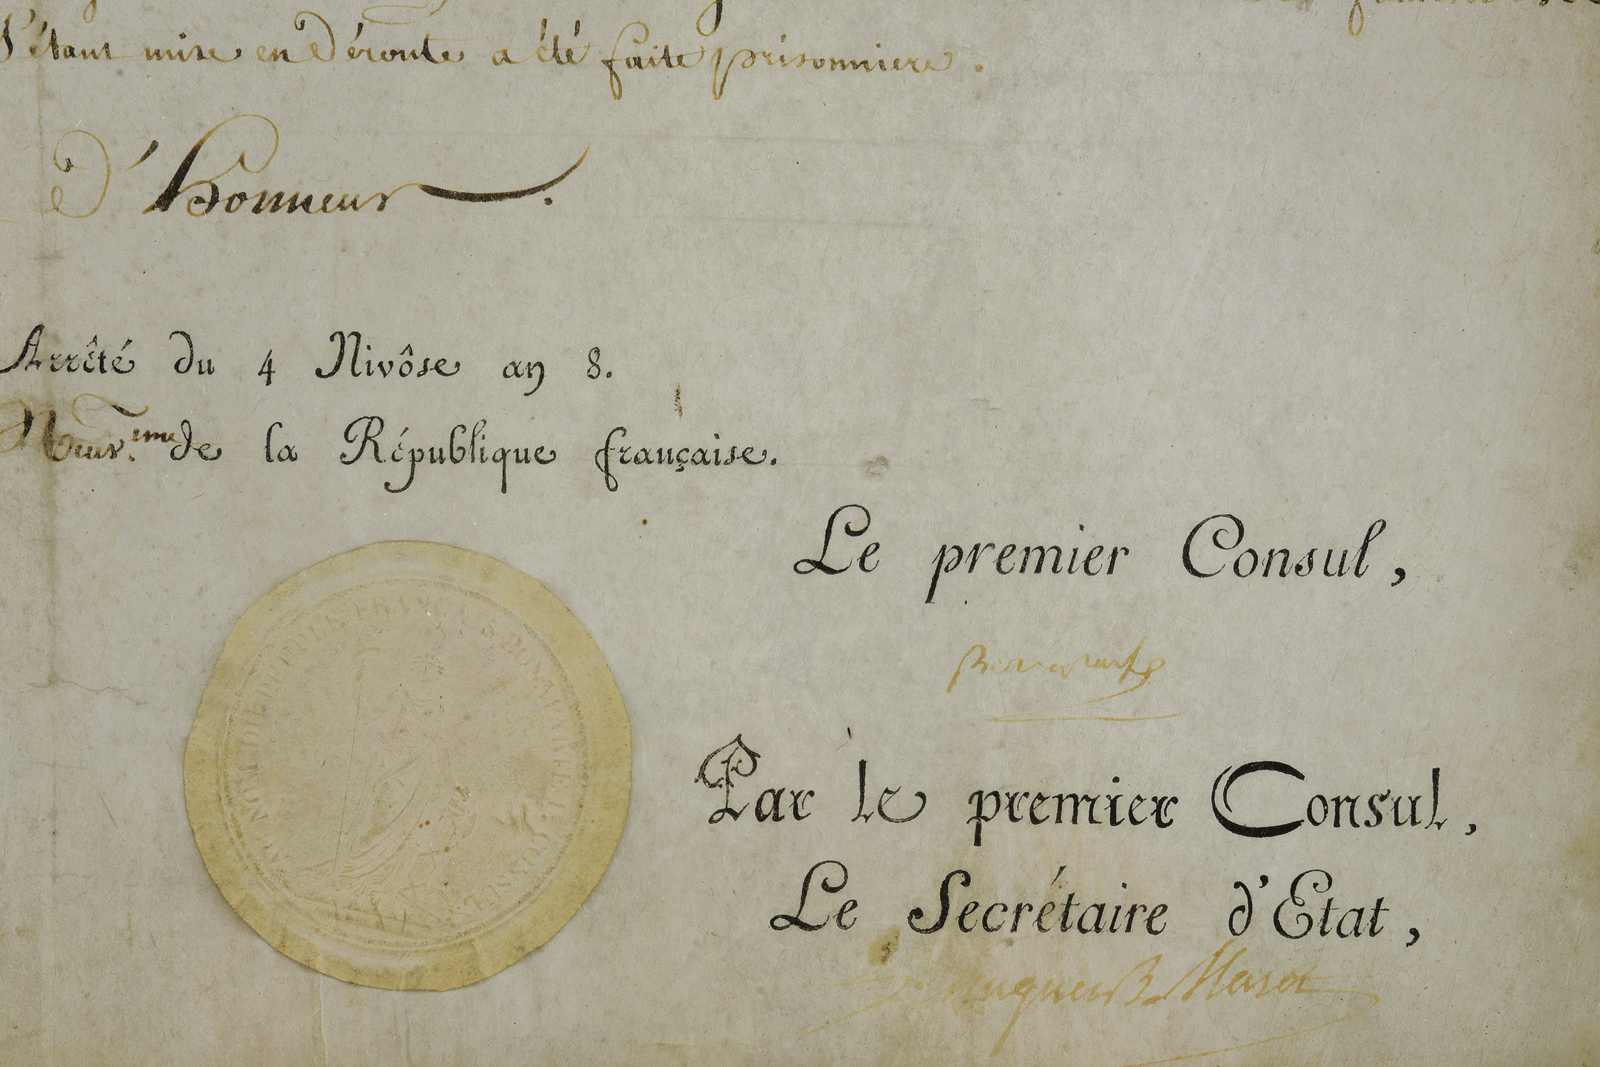 s'étant mise en Déroute a été faite prisonniere.
d'honneur.
Arrêté du 4 Nivôse an 8.
Neuv.eme de la République française.
Le premier Consul,
Bonaparte
Par le premier Consul,
Le Secrétaire d'Etat,
hugues B. Maret
AU NOM DU PEUPLE FRANÇAIS BONAPARTE 1er CONSUL